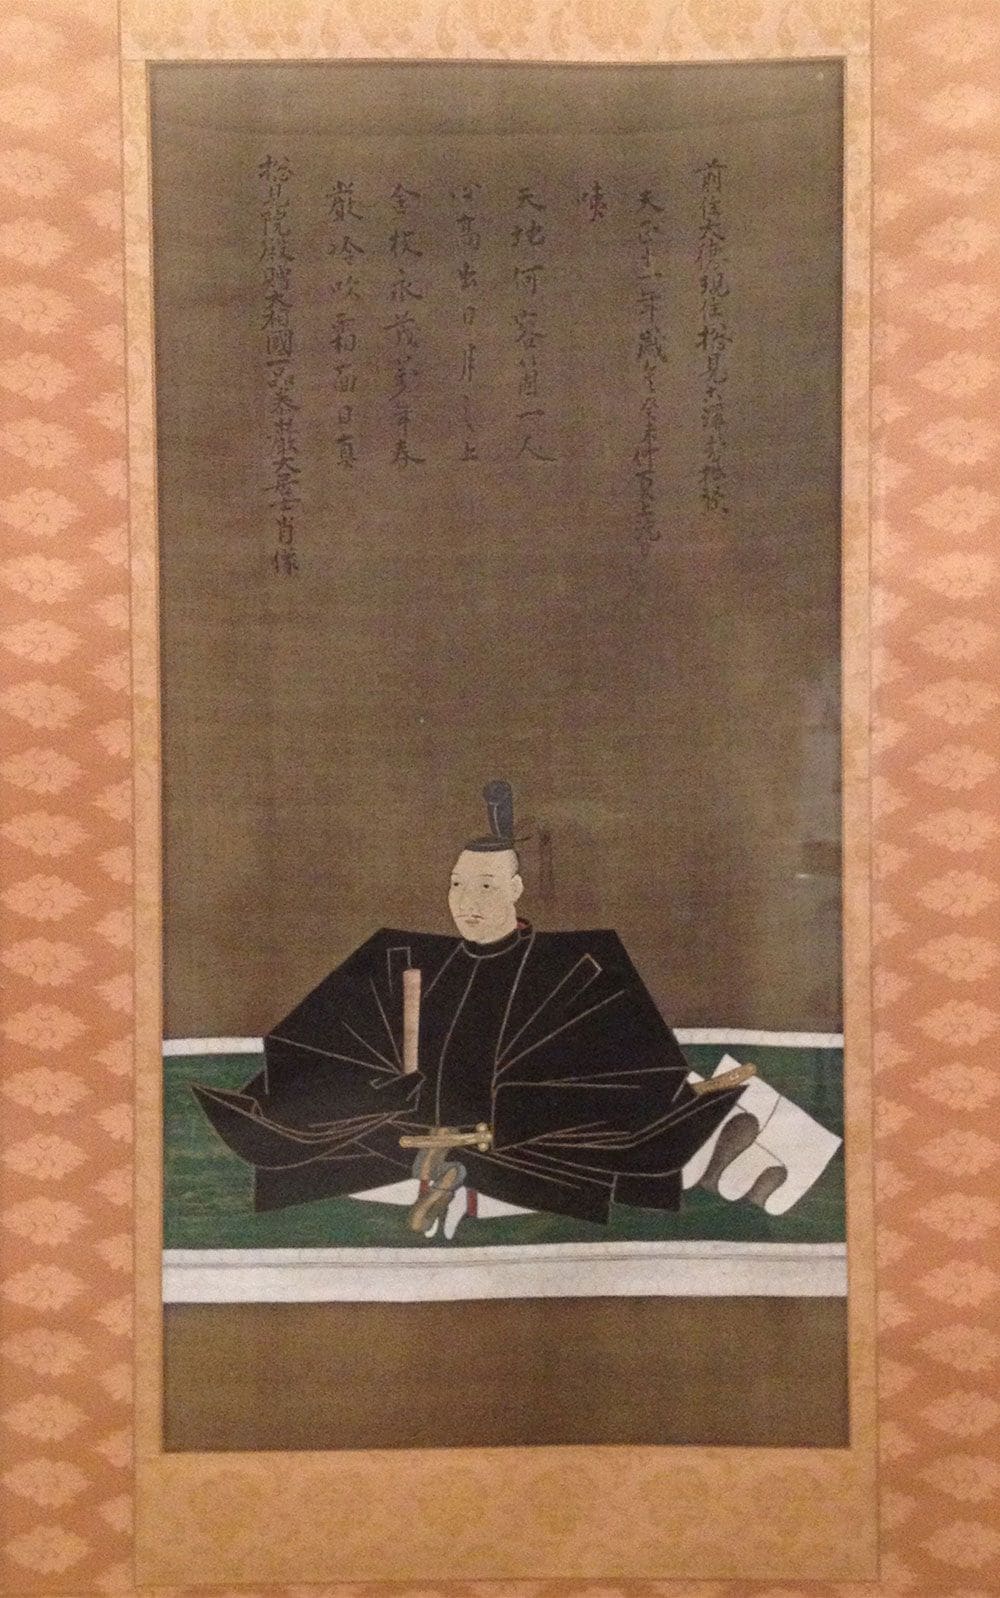 捴見院殿贈大相國一品泰巖大居士肖像
嚴冷吹霜面目真
金枝永茂萬年春
心高出日月之上
天地何容箇一人
咦
天正十一年歳舎癸未仲夏上澣日
前住大徳現住捴見古溪